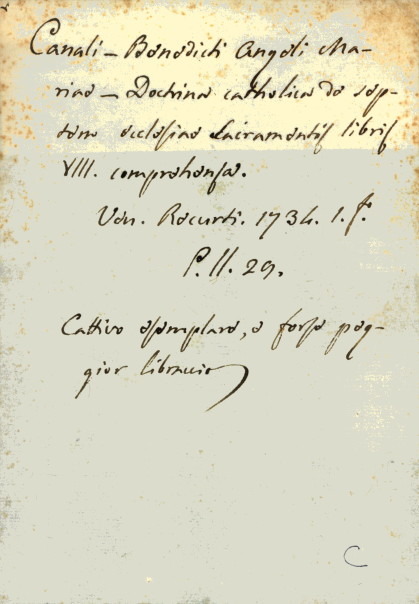 Canali - Benedicti Angeli Ma-
riae - Doctrina catholica de sep-
tem ecclesiae Sacramentis libris
VIII. comprehensa.
Ven. Recurti. 1734. 1. f.
P. ll. 29.
Cattivo esemplare, e forse peg-
gior libraccio
C